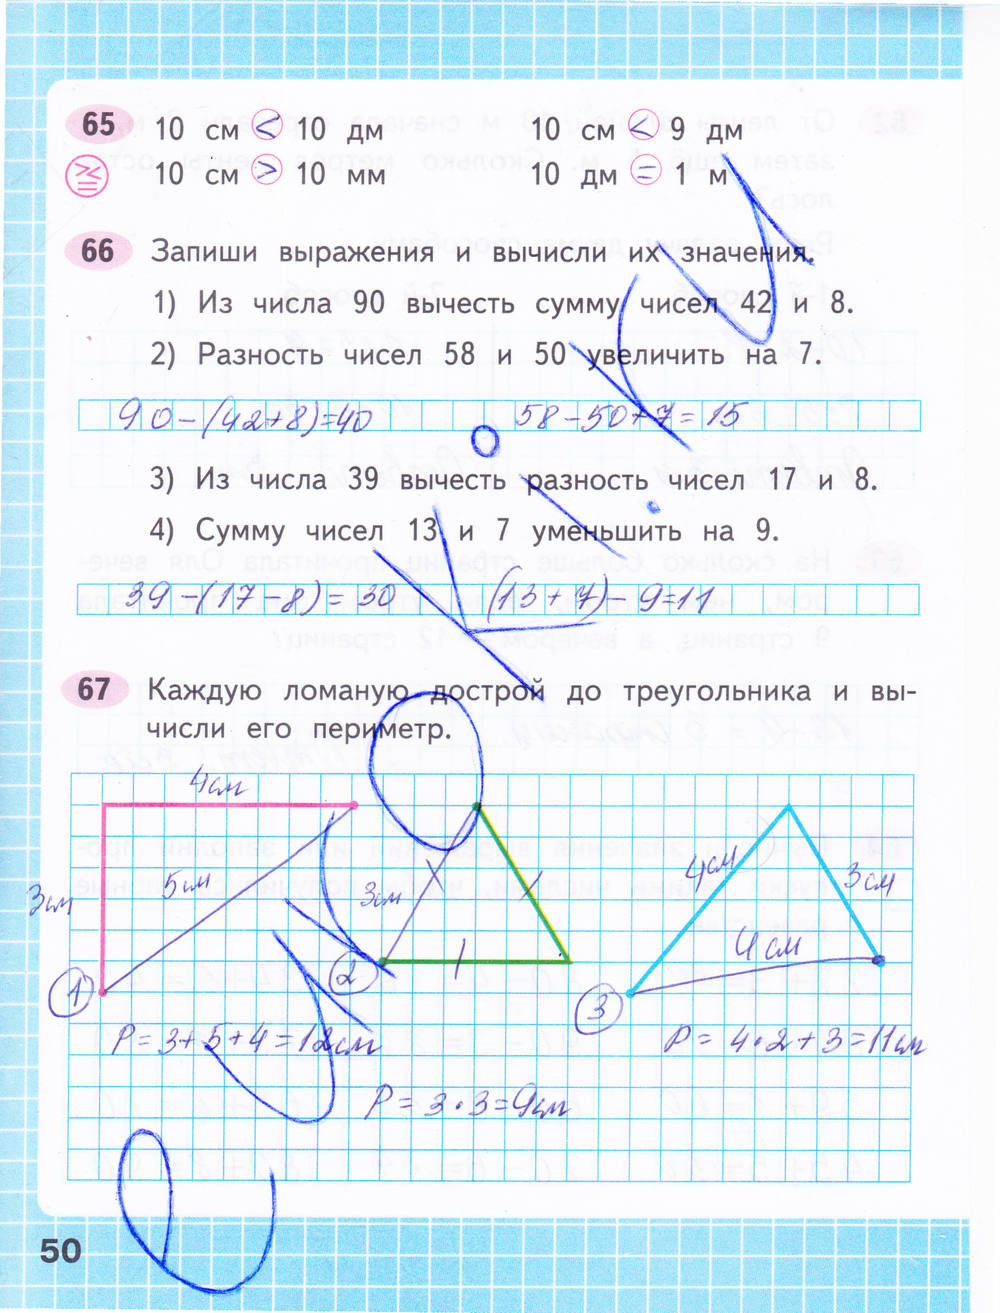 65 10 см < 10 дм 10 см < 9 дм
10 см > 10 мм 10 дм = 1 м
66 Запиши выражения и вычисли их значения.
1) Из числа 90 вычесть сумму чисел 42 и 8.
2) Разность чисел 58 и 50 увеличить на 7.
90-(42+8)=40 58-50+7=15
3) Из числа 39 вычесть разность чисел 17 и 8.
4) Сумму чисел 13 и 7 уменьшить на 9.
39-(17-8)=30 (13+7)-9=11
67 Каждую ломаную дострой до треугольника и вы-
числи его периметр.
4см
3см 5см 3см 4см 3см
4см
1 2 3
P=3+5+4=12см P=4·2+3=11см
P=3·3=9см
50